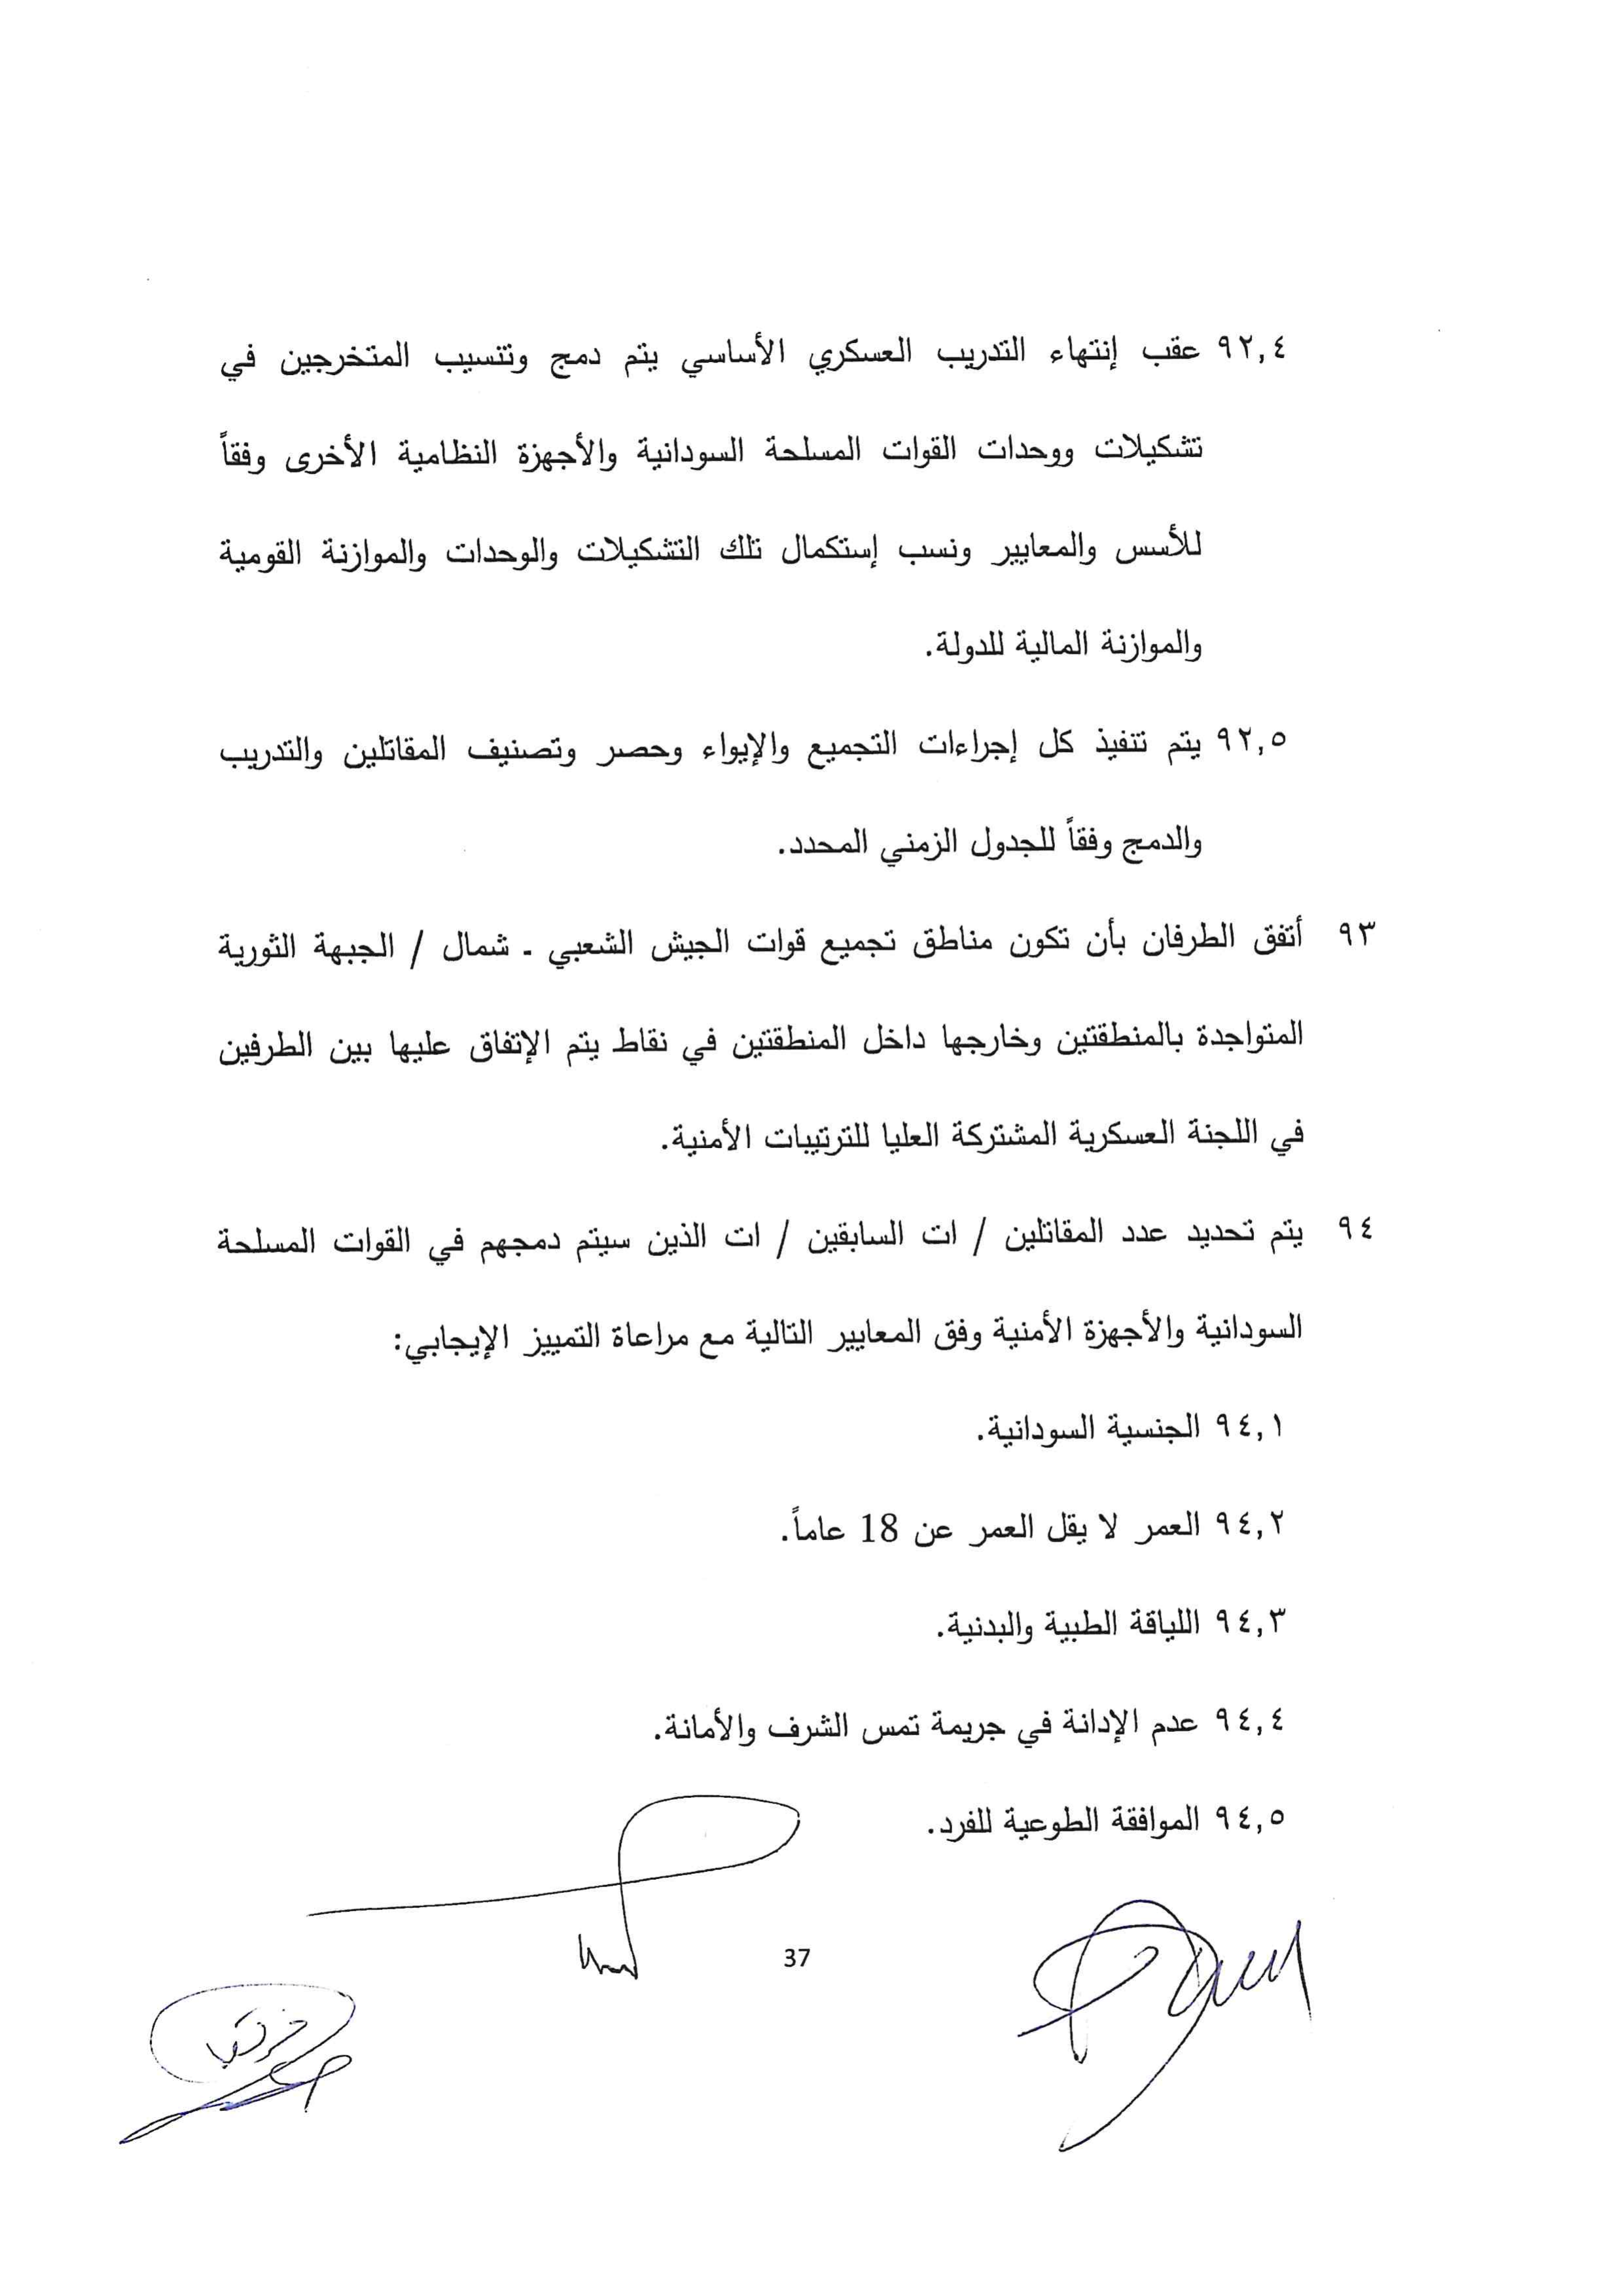 ٩٢,٤ عقب إنتهاء التدريب العسكري الأساسي يتم دمج وتنسيب المتخرجين في
تشكيلات ووحدات القوات المسلحة السودانية والأجهزة النظامية الأخرى وفقاً
للأسس والمعايير ونسب إستكمال تلك التشكيلات والوحدات والموازنة القومية
والموازنة المالية للدولة.
٩٢,٥ يتم تنفيذ كل إجراءات التجميع والإيواء وحصر وتصنيف المقاتلين والتدريب
والدمج وفقاً للجدول الزمني المحدد.
٩٣ أتفق الطرفان بأن تكون مناطق تجميع قوات الجيش الشعبي - شمال / الجبهة الثورية
المتواجدة بالمنطقتين وخارجها داخل المنطقتين في نقاط يتم الإتفاق عليها بين الطرفين
في اللجنة العسكرية المشتركة العليا للترتيبات الأمنية.
٩٤ يتم تحديد عدد المقاتلين / ات السابقين / ات الذين سيتم دمجهم في القوات المسلحة
السودانية والأجهزة الأمنية وفق المعايير التالية مع مراعاة التمييز الإيجابي:
٩٤,١ الجنسية السودانية.
٩٤,٢ العمر لا يقل العمر عن 18 عاماً.
٩٤,٣ اللياقة الطبية والبدنية.
٩٤,٤ عدم الإدانة في جريمة تمس الشرف والأمانة.
٩٤,٥ الموافقة الطوعية للفرد.
37